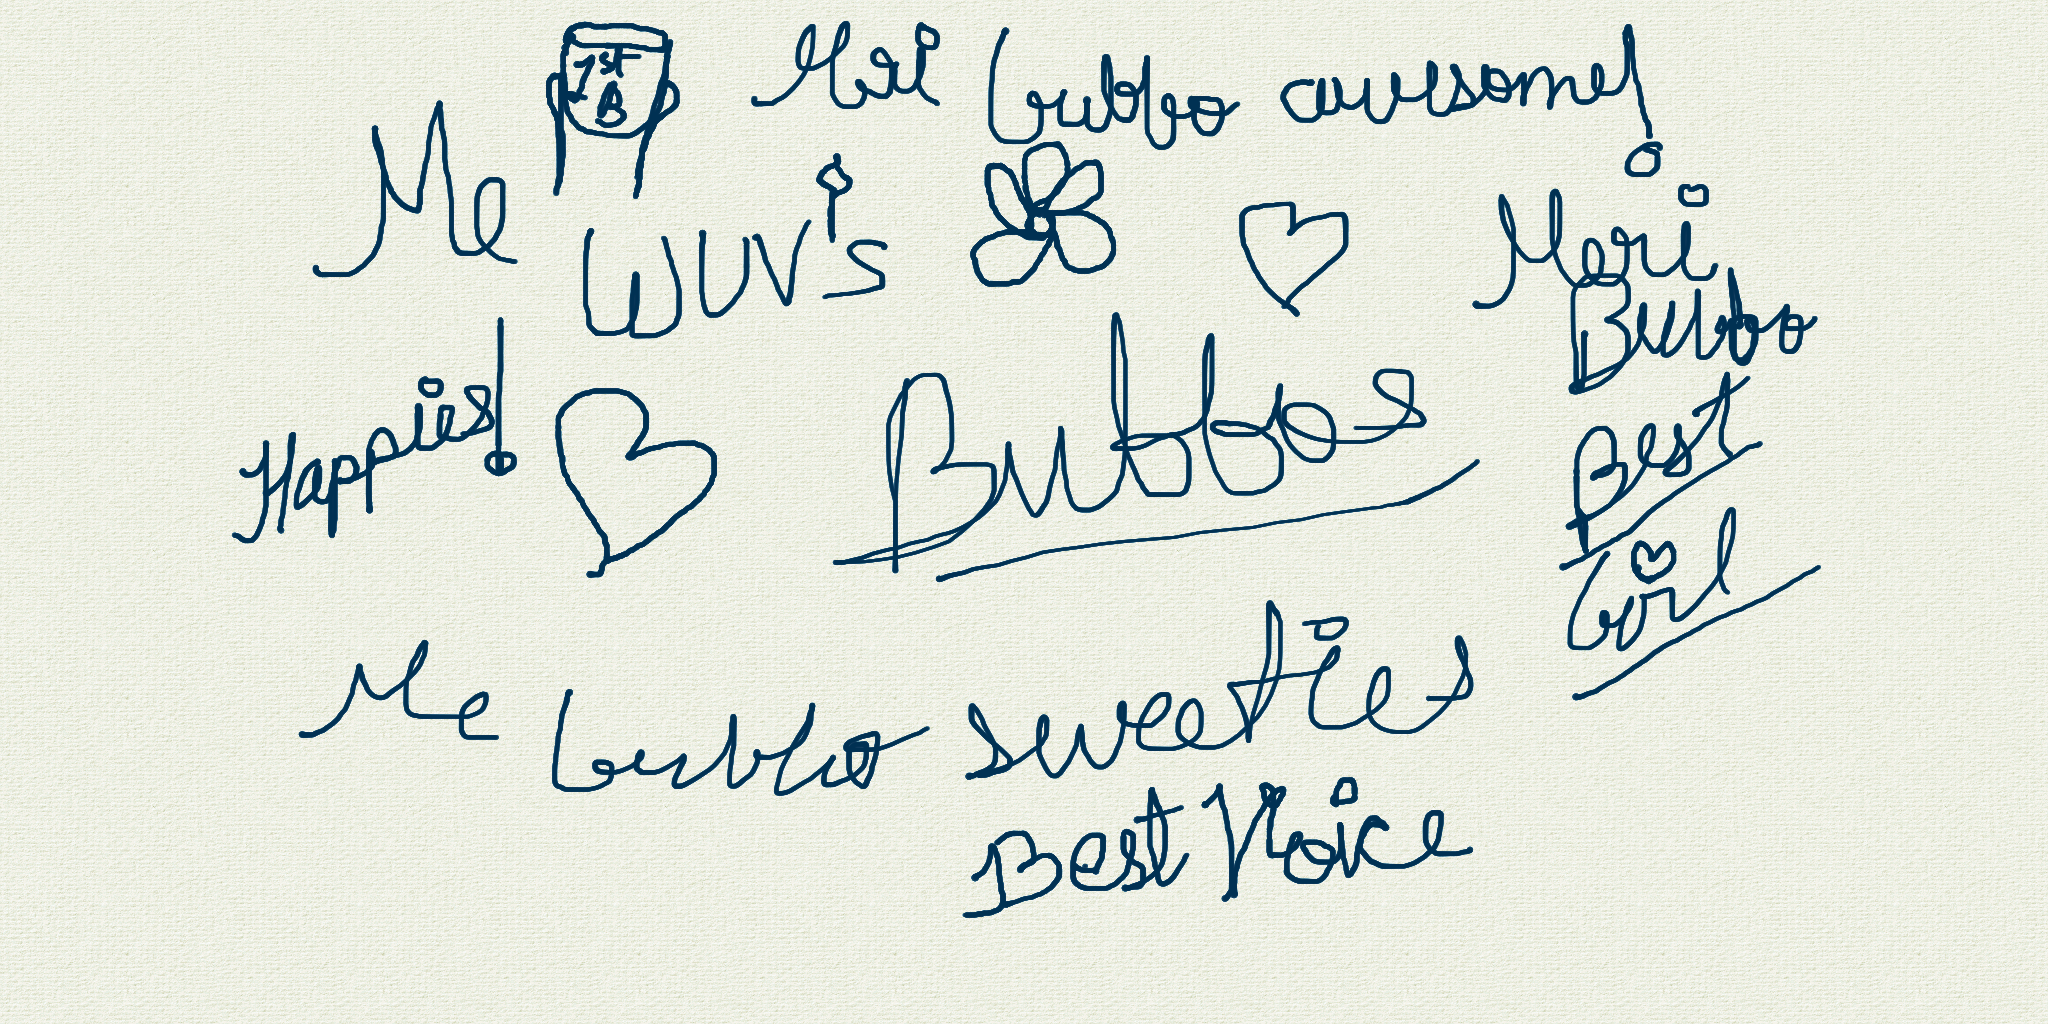 1st
B
Meri bubbo awesome!
Me wuvs
Meri
Bubbo
Happies! Bubbos
Best
Girl
Me bubbo sweeties
Best Voice